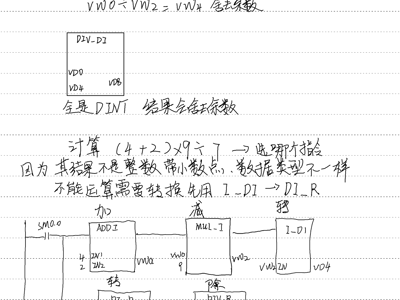 VW0÷VW2=VW4 舍去余数
DIV_DI
VD0
VD4 VD8
全是DINT 结果会舍去余数
计算 (4+2)×9÷7 → 选哪个指令
因为 其结果不是整数 带小数点、数据类型不一样
不能运算需要转换 先用 I_DI → DI_R
加 减 转
SM0.0 ADDI MUL_I I_DI
4 IN1 VW0
2 IN2 VW0 VW2 VW2 IN VD4
9
转 除
DI_R DIV_R